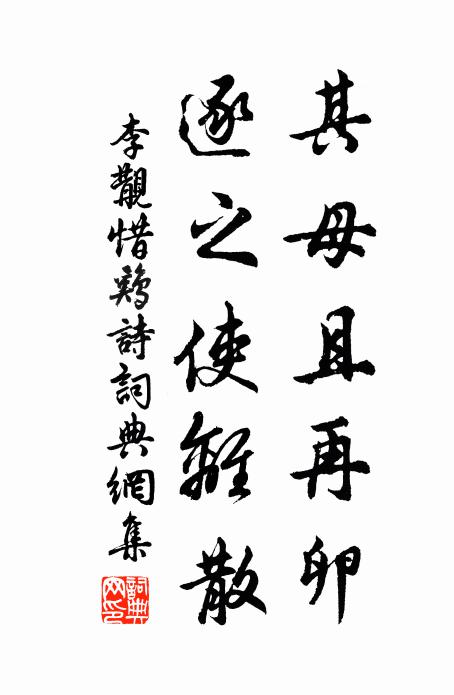 其毋且再卵
逐之使離散
李覯惜鷄詩詞典網集
詞典網印